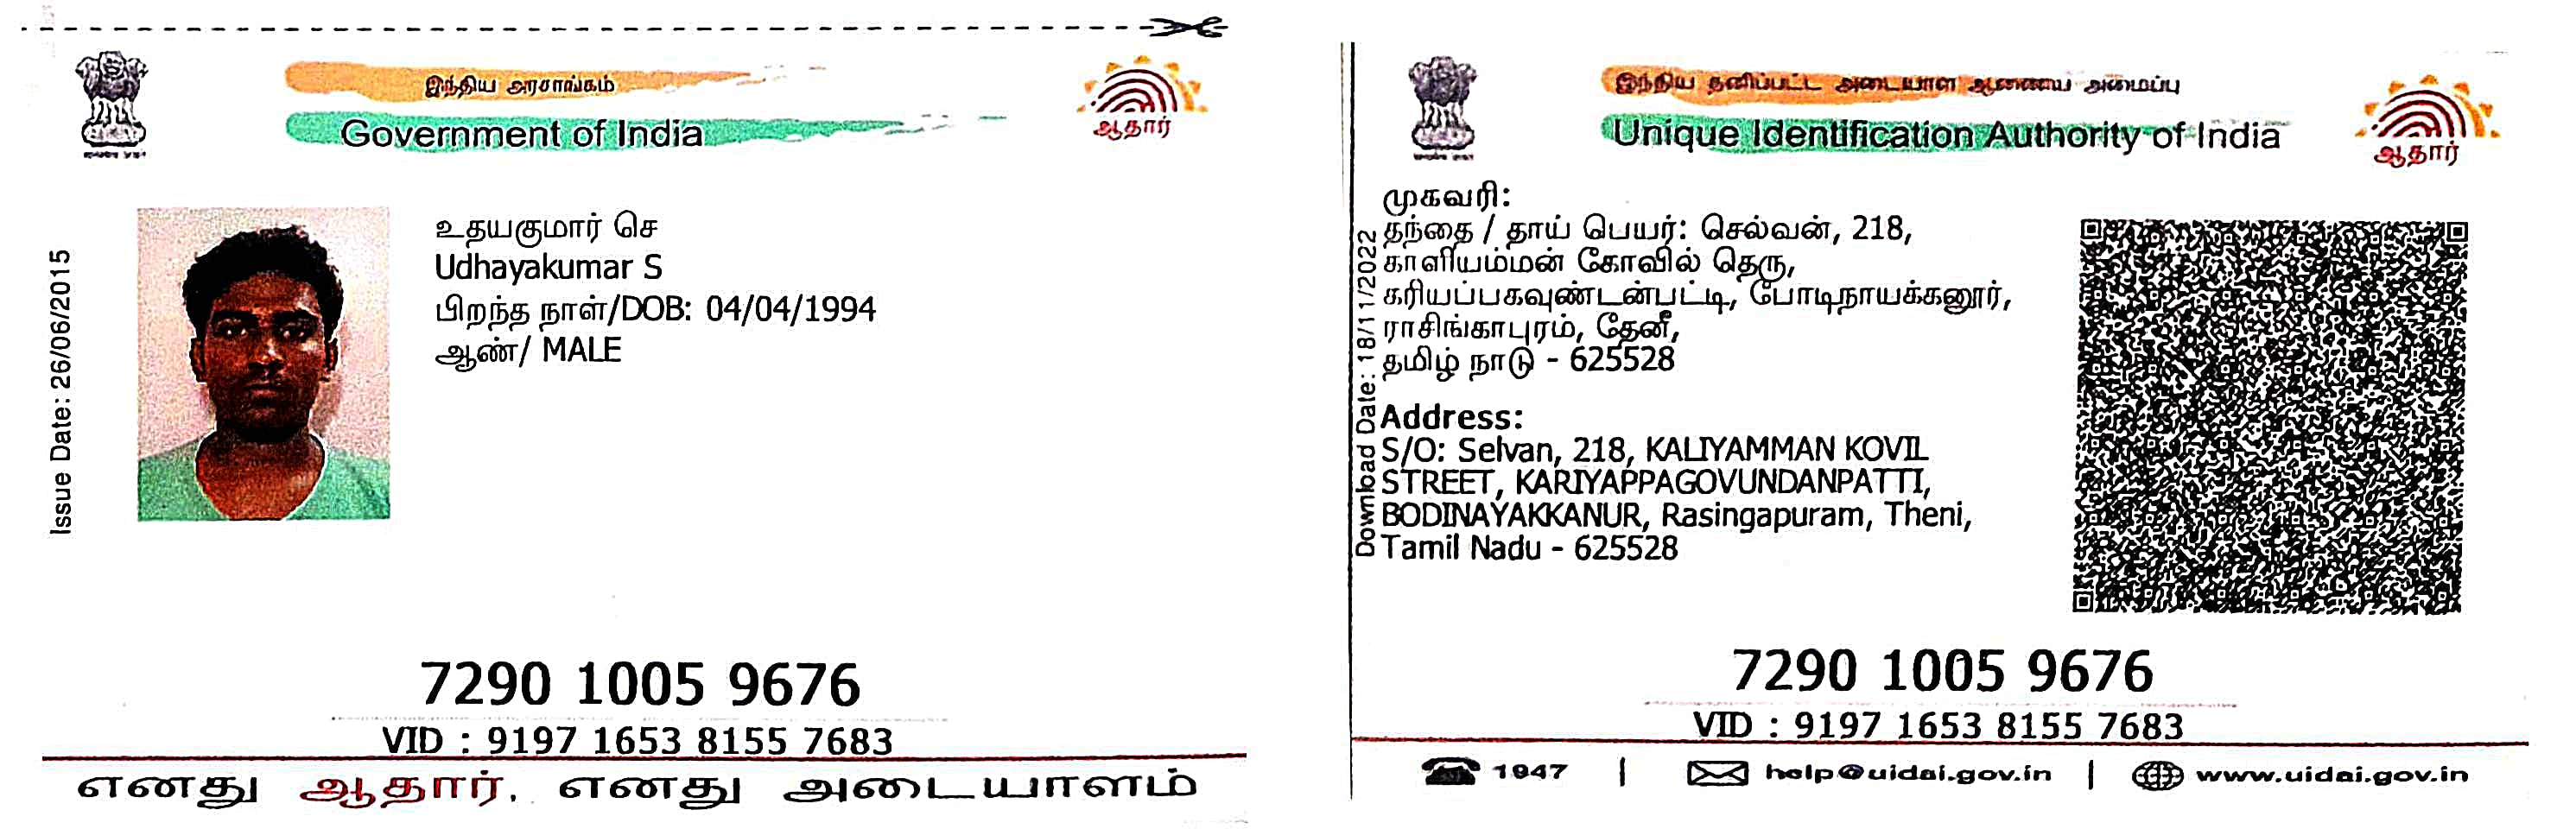 இந்திய அரசாங்கம்
Government of India
ஆதார்
Issue Date: 26/06/2015
உதயகுமார் செ
Udhayakumar S
பிறந்த நாள்/DOB: 04/04/1994
ஆண்/ MALE
7290 1005 9676
VID : 9197 1653 8155 7683
எனது ஆதார், எனது அடையாளம்
இந்திய தனிப்பட்ட அடையாள ஆணைய அமைப்பு
Unique Identification Authority of India
ஆதார்
Download Date: 18/11/2022
முகவரி:
தந்தை / தாய் பெயர்: செல்வன், 218,
காளியம்மன் கோவில் தெரு,
கரியப்பகவுண்டன்பட்டி, போடிநாயக்கனூர்,
ராசிங்காபுரம், தேனீ,
தமிழ் நாடு - 625528
Address:
S/O: Selvan, 218, KALIYAMMAN KOVIL
STREET, KARIYAPPAGOVUNDANPATTI,
BODINAYAKKANUR, Rasingapuram, Theni,
Tamil Nadu - 625528
7290 1005 9676
VID : 9197 1653 8155 7683
1947 | help@uidai.gov.in | www.uidai.gov.in